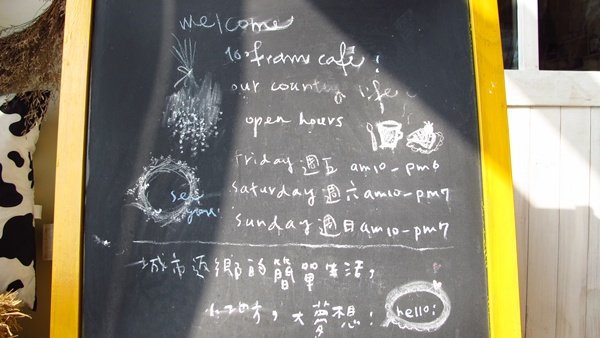 welcome
to fram café!
our country life
open hours
Friday 週五 am10-pm6
saturday 週六 am10-pm7
sunday 週日 am10-pm7
see you!
城市返鄉的簡單生活,
小地方,大夢想!
hello!